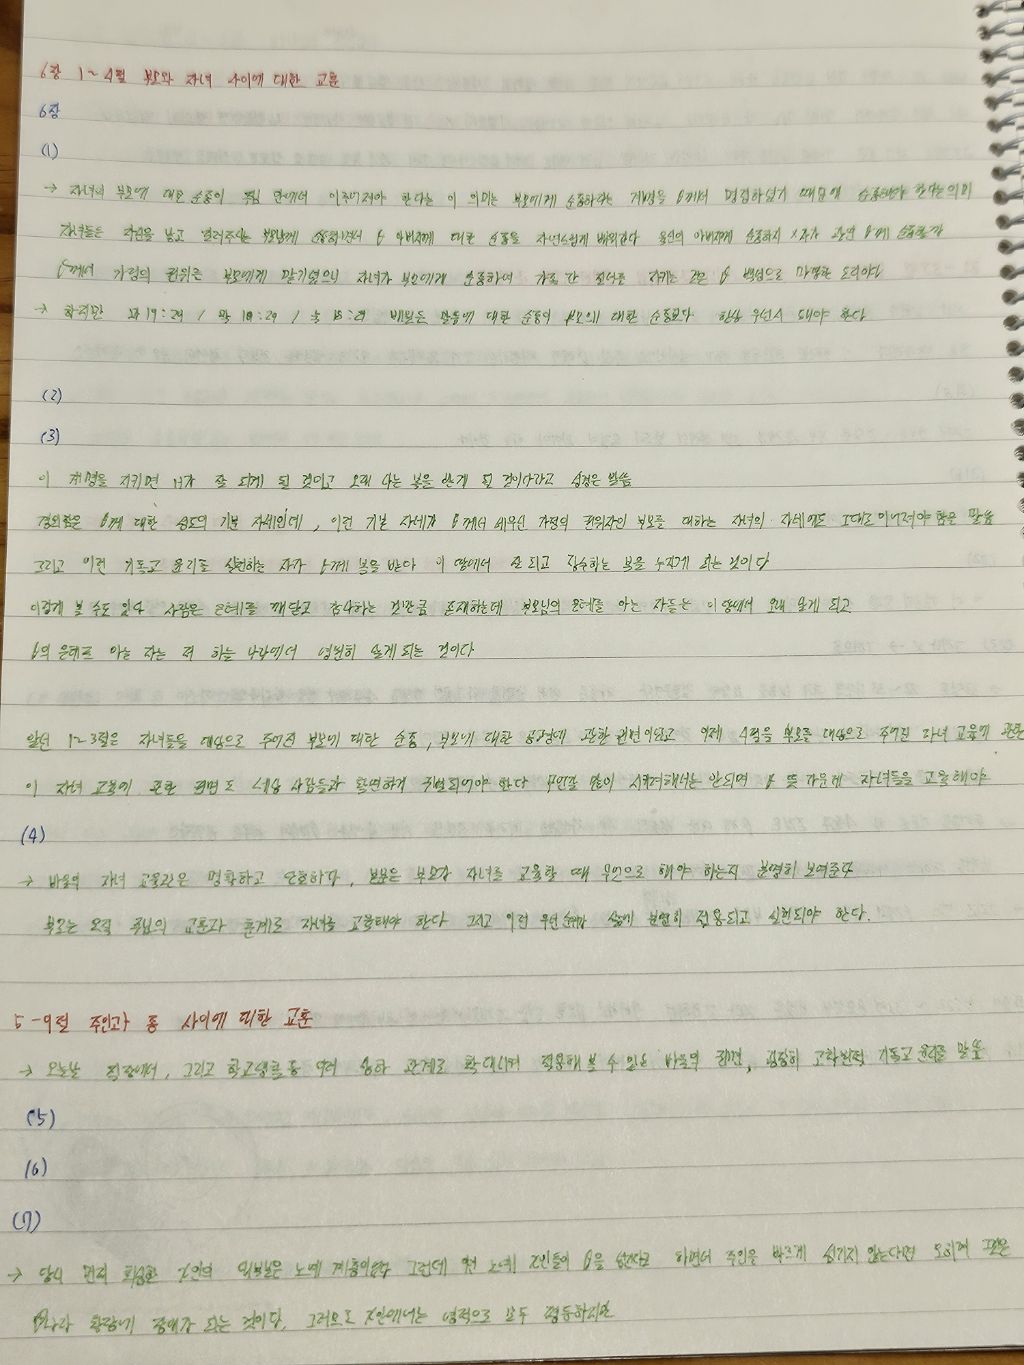 6장 1~4절 부모와 자녀 사이에 대한 교훈
6장
(1)
→ 자녀의 부모에 대한 순종이 주님 안에서 이루어져야 한다는 이 의미는 부모에게 순종하라는 계명을 θ께서 명령하셨기 때문에 순종해야 한다는 의미
자녀들은 자신을 낳고 길러주시는 부모님께 순종하면서 θ 아버지께 대한 순종을 자연스럽게 배워간다 육신의 아버지께 순종하지 x자가 과연 θ께 순종할까
θ께서 가정의 권위를 부모에게 맡기셨으니 자녀가 부모에게 순종하여 가정 간 질서를 지키는 것은 θ 백성으로 마땅한 도리이다
→ 하지만 마19:29 / 막10:29 / 눅18:29 말씀에 대한 순종이 부모에 대한 순종보다 항상 우선시 돼야 한다
(2)
(3)
이 계명을 지키면 네가 잘 되게 될 것이고 오래 사는 복을 받게 될 것이다라고 성경은 말씀
경외함은 θ께 대한 성도의 기본 자세인데, 이런 기본 자세가 θ께서 세우신 가정의 권위자인 부모를 대하는 자녀의 자세에도 그대로 이어져야 함은 말씀
그리고 이런 기독교 윤리를 실천하는 자가 θ께 복을 받다 이 땅에서 잘 되고 장수하는 복을 누리게 되는 것이다
이렇게 볼 수도 있다 사람은 은혜를 깨닫고 감사하는 것만큼 존재하는데 부모님의 은혜를 아는 자들은 이 땅에서 오래 살게 되고
θ의 은혜를 아는 자는 저 하늘 나라에서 영원히 살게 되는 것이다
앞선 1~3절은 자녀들을 대상으로 주어진 부모에 대한 순종, 부모에 대한 공경에 관한 권면이었고 이제 4절은 부모를 대상으로 주어진 자녀 교육에 관한
이 자녀 교육에 관한 권면도 세상 사람들과 확연하게 구별되어야 한다 무언갈 많이 시켜려해서는 안되며 θ 뜻 가운데 자녀들을 교육해야
(4)
→ 바울의 자녀 교육관은 명확하고 단호하다, 본문은 부모가 자녀를 교육할 때 무엇으로 해야 하는지 분명히 보여준다
부모는 오직 주님의 교훈과 훈계로 자녀를 교육해야 한다 그리고 이런 우선순위가 삶에 분명히 적용되고 실현되야 한다.
5-9절 주인과 종 사이에 대한 교훈
→ 오늘날 직장에서, 그리고 학교생활 등 여러 상하 관계로 확대시켜 적용해 볼 수 있음 바울의 권면, 굉장히 고차원적 기독교 윤리를 말씀
(5)
(6)
(7)
→ 당시 먼저 회심한 그리고 대부분은 노예 계층이었다 그런데 노예 하면서 주인을 바르게 섬기지 않는다면 도리어
θ나라 확장에 장애가 되는 것이다. 그러므로 영적으로 모두 평등하지만